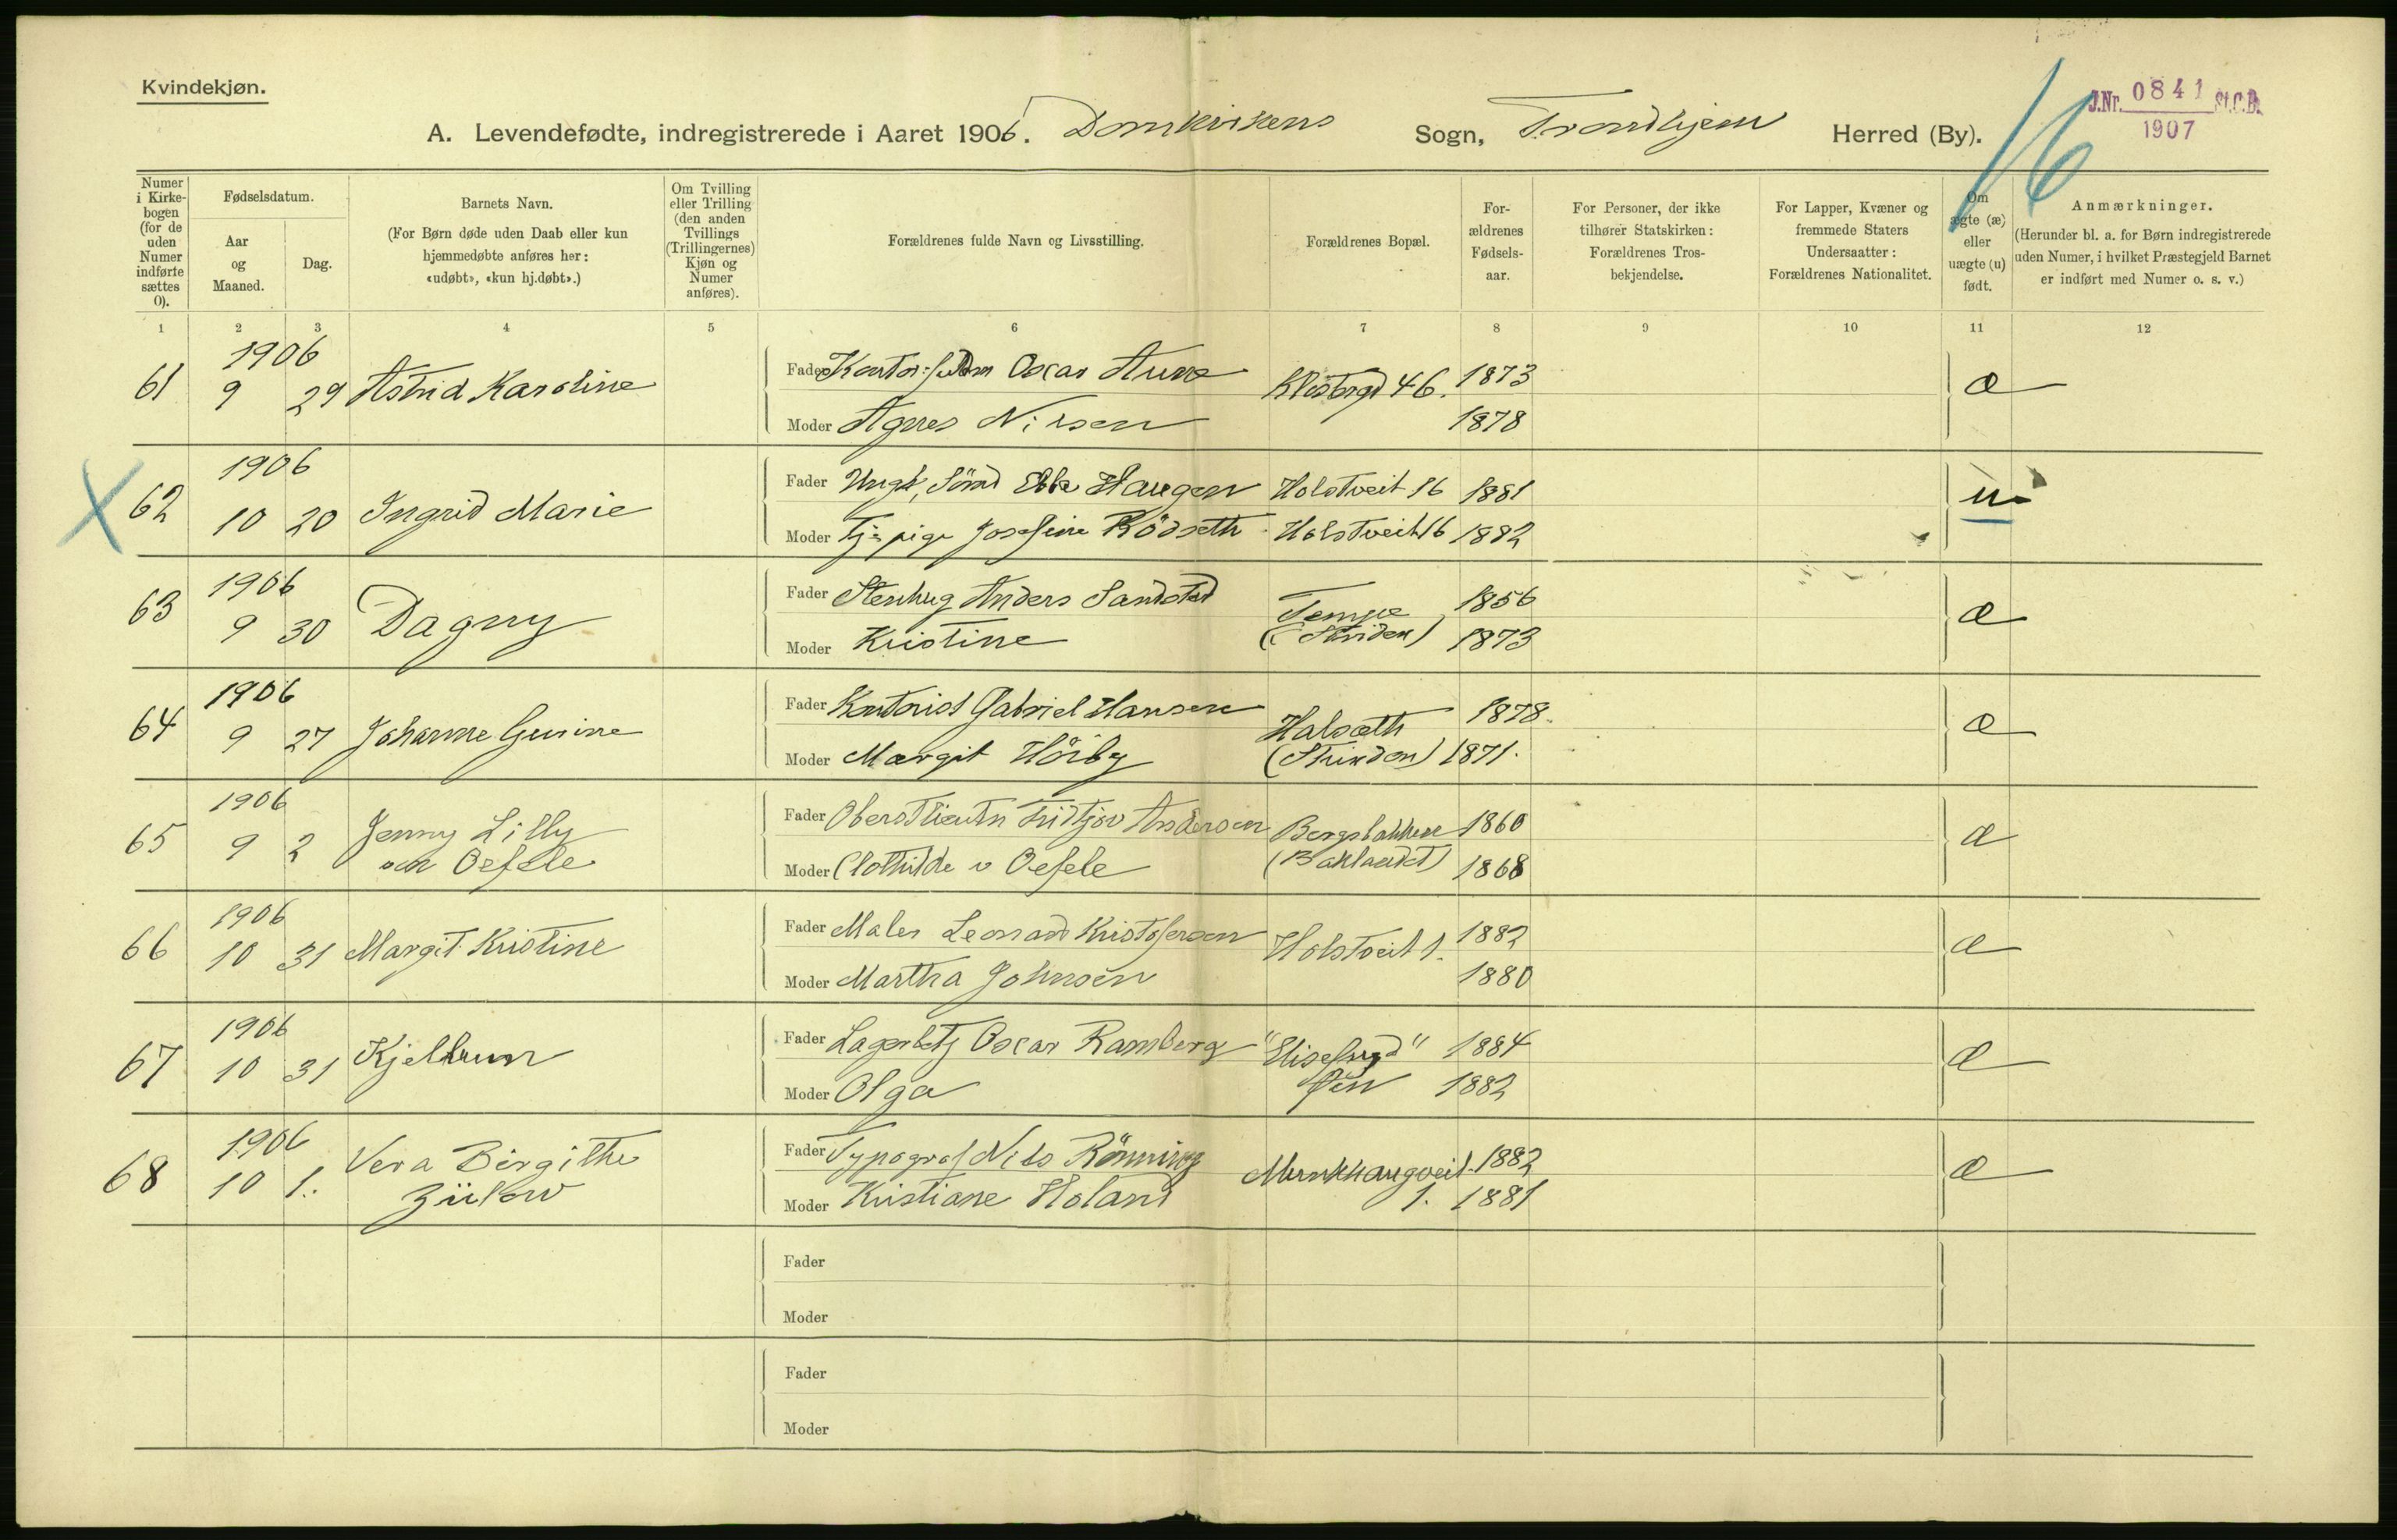 Kvindekjøn.
J.Nr. 0841 St.C.B.
1907
16
A. Levendefødte, indregistrerede i Aaret 1906. Domkirkens Sogn, Trondhjem Herred (By).
Numer i Kirkebogen (for de uden Numer indførte sættes 0).
Fødselsdatum.
Aar og Maaned.
Dag.
Barnets Navn.
(For Børn døde uden Daab eller kun hjemmedøbte anføres her: «udøbt», «kun hj.døbt».)
Om Tvilling eller Trilling (den anden Tvillings (Trillingernes) Kjøn og Numer anføres).
Forældrenes fulde Navn og Livsstilling.
Forældrenes Bopæl.
Forældrenes Fødselsaar.
For Personer, der ikke tilhører Statskirken: Forældrenes Trosbekjendelse.
For Lapper, Kvæner og fremmede Staters Undersaatter: Forældrenes Nationalitet.
Om ægte (æ) eller uægte (u) født.
Anmærkninger.
(Herunder bl. a. for Børn indregistrerede uden Numer, i hvilket Præstegjeld Barnet er indført med Numer o. s. v.)
1 2 3 4 5 6 7 8 9 10 11 12
1906
61 9 29 Astrid Karoline Fader Oscar Aune Klostergd 46. 1873 æ
Moder Agnes Nilsen 1878
1906
X 62 10 20 Ingrid Marie Fader Ungk, Ebbe Haugen Holstveit 16 1881 u
Moder Tj: pige Josefine Rödseth Holstveit 16 1882
1906
63 9 30 Dagny Fader Stenhug Anders Sandstad Tempe 1856 æ
Moder Kristine (Strinden) 1873
1906
64 9 27 Johanne Gurine Fader Kontorist Gabriel Hansen Halsæth 1878. æ
Moder Margit Hörby (Strinden) 1871.
1906
65 9 2 Jenny Lilly Fader Oberstlieutn Fridtjov Andersen Bergsbakken 1860 æ
von Oefele Moder Clothilde v Oefele (Baklandet) 1868
1906
66 10 31 Margit Kristine Fader Maler Leonard Kristofersen Holstveit 1. 1882 æ
Moder Martha Johnsen 1880
1906
67 10 31 Kjellrun Fader Lagerbetj Oscar Ramberg "Elisefryd" 1884 æ
Moder Olga Øen 1882
1906
68 10 1. Vera Birgithe Fader Typograf Nils Rönning Munkhaugveit 1882 æ
Zülow Moder Kristiane Holand 1. 1881
Fader
Moder
Fader
Moder